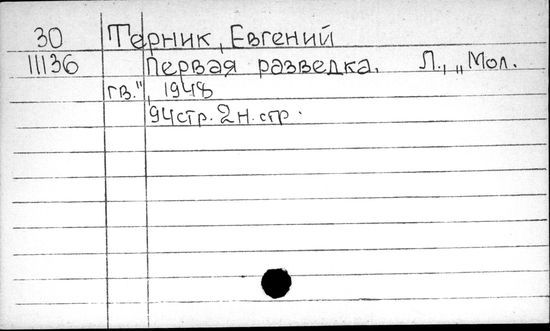 30 Терник, Евгений
11136 Первая разведка. Л., „Мол.
гв.", 1948
94стр. 2н. стр.